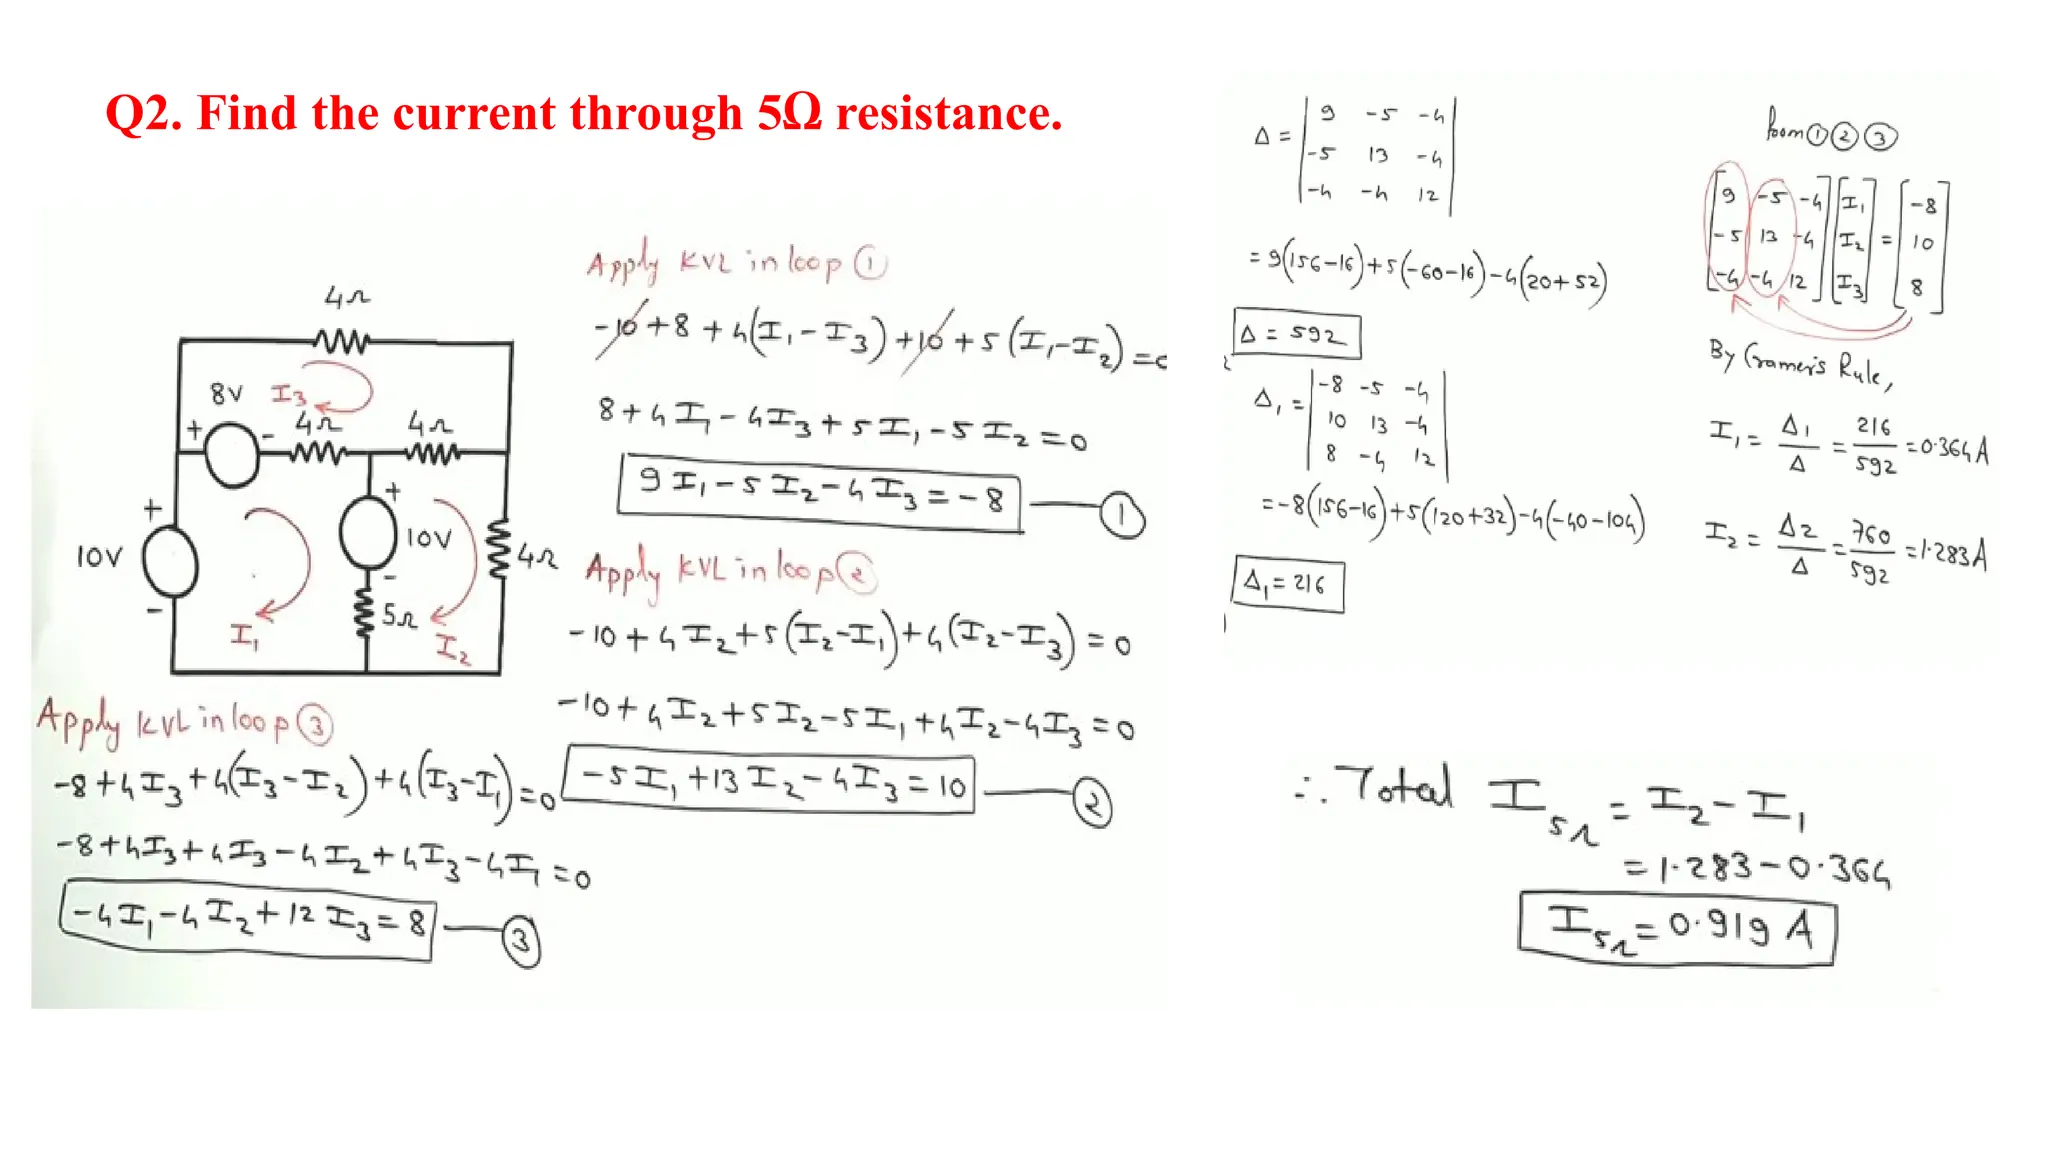 Q2. Find the current through 5Ω resistance.
4Ω
8V I₃
+ - 4Ω 4Ω
+ +
10V 10V 4Ω
- -
5Ω
I₁ I₂
Apply KVL in loop ①
-10+8+4(I₁-I₃)+10+5(I₁-I₂)=0
8+4I₁-4I₃+5I₁-5I₂=0
9I₁-5I₂-4I₃=-8 ①
Apply KVL in loop ②
-10+4I₂+5(I₂-I₁)+4(I₂-I₃)=0
-10+4I₂+5I₂-5I₁+4I₂-4I₃=0
-5I₁+13I₂-4I₃=10 ②
Apply KVL in loop ③
-8+4I₃+4(I₃-I₂)+4(I₃-I₁)=0
-8+4I₃+4I₃-4I₂+4I₃-4I₁=0
-4I₁-4I₂+12I₃=8 ③
Δ = | 9 -5 -4 |
| -5 13 -4 |
| -4 -4 12 |
= 9(156-16)+5(-60-16)-4(20+52)
Δ = 592
Δ₁ = | -8 -5 -4 |
| 10 13 -4 |
| 8 -4 12 |
= -8(156-16)+5(120+32)-4(-40-104)
Δ₁ = 216
from ① ② ③
[ 9 -5 -4 ] [ I₁ ] [ -8 ]
[ -5 13 -4 ] [ I₂ ] = [ 10 ]
[ -4 -4 12 ] [ I₃ ] [ 8 ]
By Cramer's Rule,
I₁ = Δ₁/Δ = 216/592 = 0.364A
I₂ = Δ2/Δ = 760/592 = 1.283A
∴ Total I₅Ω = I₂-I₁
= 1.283-0.364
I₅Ω = 0.919 A